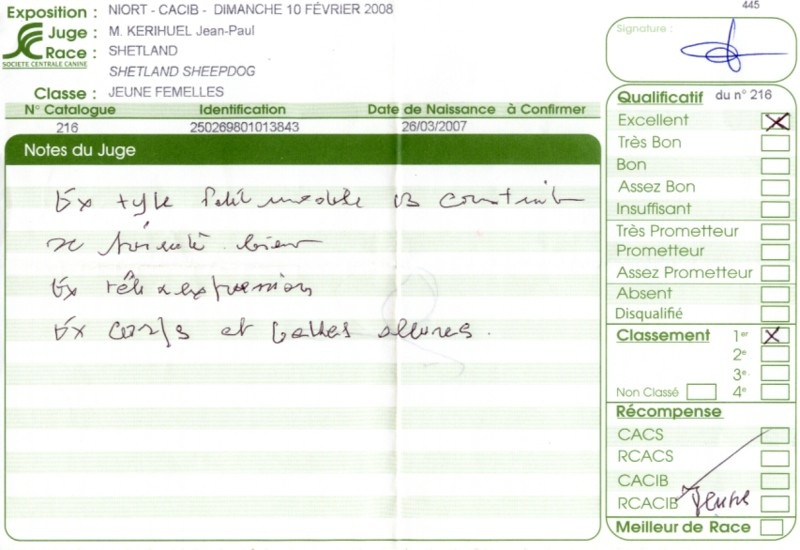 445
Exposition : NIORT - CACIB - DIMANCHE 10 FÉVRIER 2008
Juge : M. KERIHUEL Jean-Paul
Race : SHETLAND
SOCIETE CENTRALE CANINE
SHETLAND SHEEPDOG
Classe : JEUNE FEMELLES
N° Catalogue Identification Date de Naissance à Confirmer
216 250269801013843 26/03/2007
Notes du Juge
Ex type Petit modèle B construite
se présente bien
Ex tête expression
Ex corps et belles allures.
Signature :
Qualificatif du n° 216
Excellent X
Très Bon
Bon
Assez Bon
Insuffisant
Très Prometteur
Prometteur
Assez Prometteur
Absent
Disqualifié
Classement 1er X
2e
3e
Non Classé 4e
Récompense
CACS
RCACS
CACIB
RCACIB Jeune
Meilleur de Race